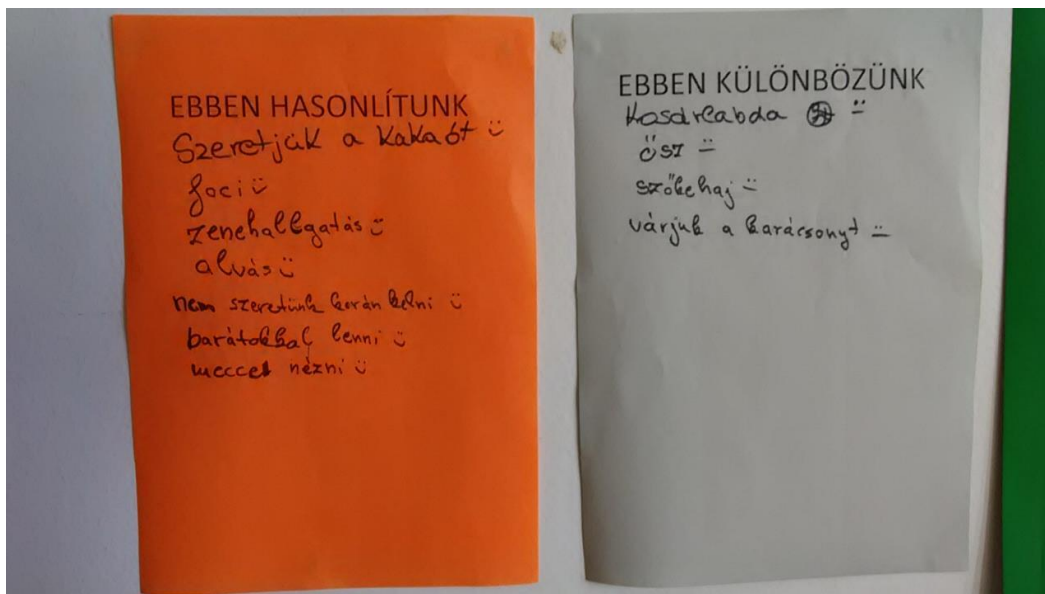 EBBEN HASONLÍTUNK
Szeretjük a kakaót
foci
zenehallgatás
alvás
nem szeretünk korán kelni
barátokkal lenni
meccset nézni
EBBEN KÜLÖNBÖZÜNK
Kosárlabda
ősz
szőkehaj
várjuk a karácsonyt